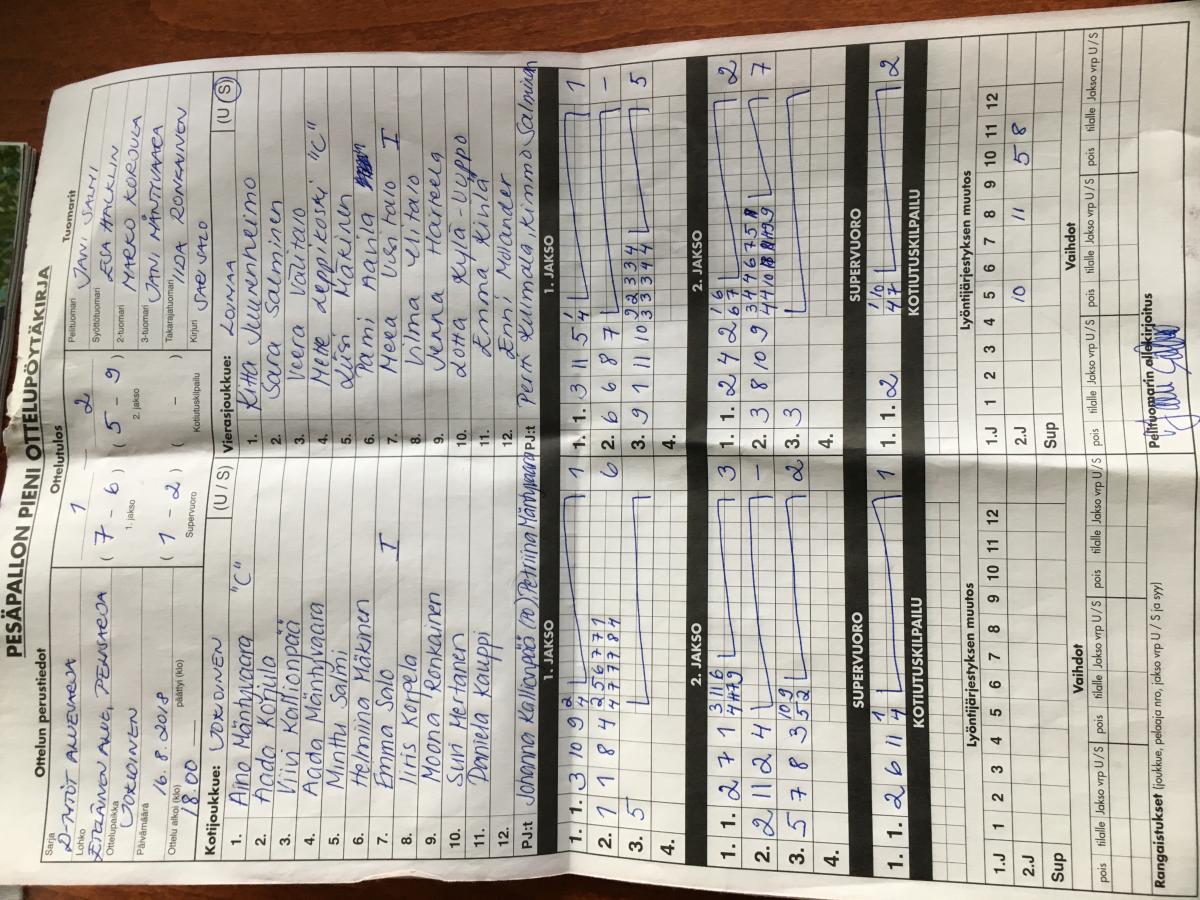 PESÄPALLON PIENI OTTELUPÖYTÄKIRJA
Ottelun perustiedot
Ottelutulos
Tuomarit
Sarja
D-TYTÖT ALUESARJA
Lohko
ETELÄINEN ALUE,
Ottelupaikka
JOKIOINEN
Päivämäärä
16.8.2018
Ottelu alkoi (klo)
18.00
päättyi (klo)
1 – 2
( 7 – 6 ) ( 5 – 9 )
1. jakso 2. jakso
( 1 – 2 ) ( – )
Supervuoro Kotiutuskilpailu
Pelituomari
JANI SALMI
Syöttötuomari
ESA HACKLIN
2-tuomari
MARKO KOROULA
3-tuomari
JANI MÄNTYVAARA
Takarajatuomari
VIIDA RONKAINEN
Kirjuri
SARI SALO
Kotijoukkue: JOKIOINEN (U / S)
1. Aina Mäntyvaara "C"
2. Aada Kottila
3. Viivi Kallionpää
4. Aada Mäntyvaara
5. Minttu Salmi
6. Hermiina Mäkinen
7. Emma Salo I
8. Iiris Korpela
9. Moona Ronkainen
10. Suvi Hietanen
11. Daniela Kauppi
12.
PJ:t Johanna Kalliopää (PJ) Petriina Mäntyvaara
Vierasjoukkue: LOUNAA (U S)
1. Kitta Vuorenheimo
2. Sara Salminen
3. Veera Välitalo
4. Mette Leppikoski "C"
5. Liisi Mäkinen
6. Pami Aanila
7. Meea Uusitalo I
8. Vilma Ylitalo
9. Jenna Hairreela
10. Lotta Kylä-Uuppo
11. Emma Kinla
12. Enni Mollander
PJ:t Pert Kuumala, Kimmo Salminen
1. JAKSO
1. 1. 3 10 9 2 4 1
2. 1 1 8 4 2 5 6 7 7 1 6
4 7 7 7 8 4
3. 5
4.
1. JAKSO
1. 1. 3 11 5 1 4 1
2. 6 6 8 7 –
3. 9 1 11 10 9 2 2 3 3 4 5
3 3 3 4 4
4.
2. JAKSO
1. 1. 2 7 1 3 11 6 3
4 4 7 9
2. 2 11 2 4 –
3. 5 7 8 3 10 9 2
5 2
4.
2. JAKSO
1. 1. 2 4 2 1 6 2
6 7
2. 3 8 10 9 3 4 4 6 7 5 7
4 4 10
3. 3
4.
SUPERVUORO
1. 1. 2 6 11 1 4 1
SUPERVUORO
1. 1. 2 1 10 2
4 7
KOTIUTUSKILPAILU
KOTIUTUSKILPAILU
Lyöntijärjestyksen muutos
1.J 1 2 3 4 5 6 7 8 9 10 11 12
2.J
Sup
Lyöntijärjestyksen muutos
1.J 1 2 3 4 5 6 7 8 9 10 11 12
2.J 10 11 5 8
Sup
Vaihdot
pois tilalle Jakso vrp U / S pois tilalle Jakso vrp U / S pois tilalle Jakso vrp U / S
Vaihdot
pois tilalle Jakso vrp U / S pois tilalle Jakso vrp U / S pois tilalle Jakso vrp U / S
Rangaistukset (joukkue, pelaaja nnro, jakso vrp, jakso U / S ja syy)
Pelituomarin allekirjoitus